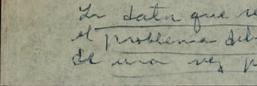 La data que re
el problema del
de una vez p